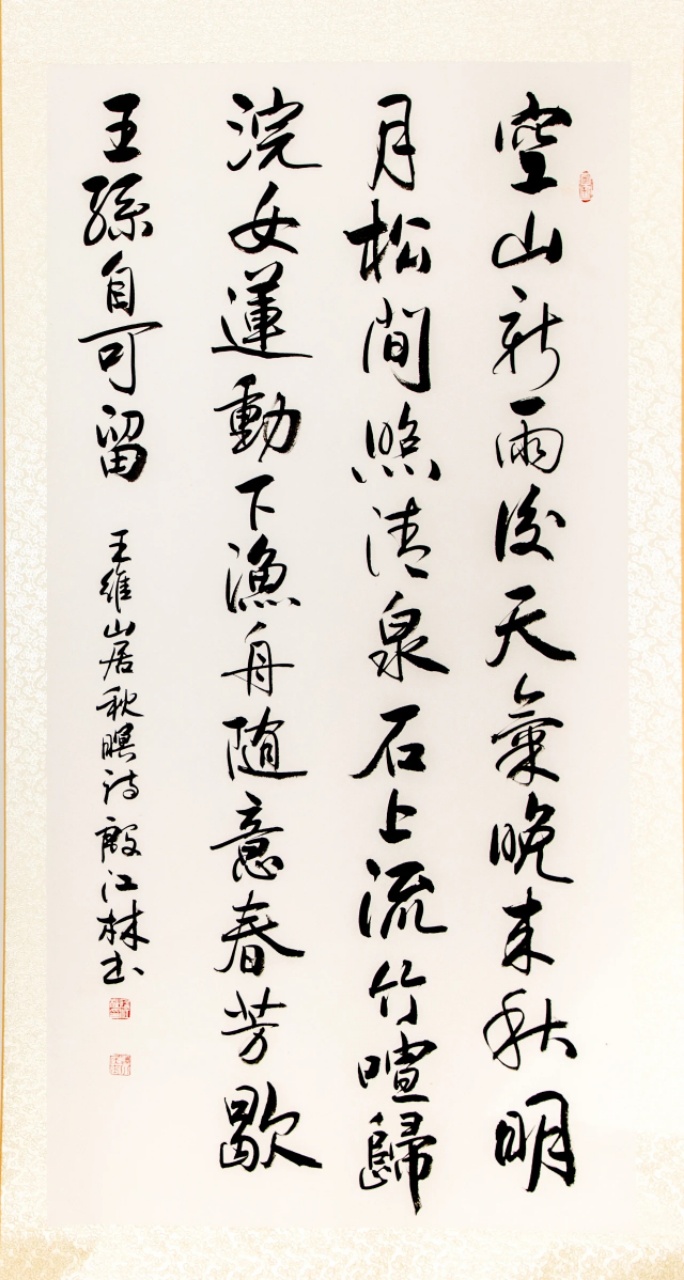 空山新雨後天氣晚来秋明
月松間照清泉石上流竹喧歸
浣女蓮動下漁舟随意春芳歇
王孫自可留
王維山居秋暝诗殷江林书